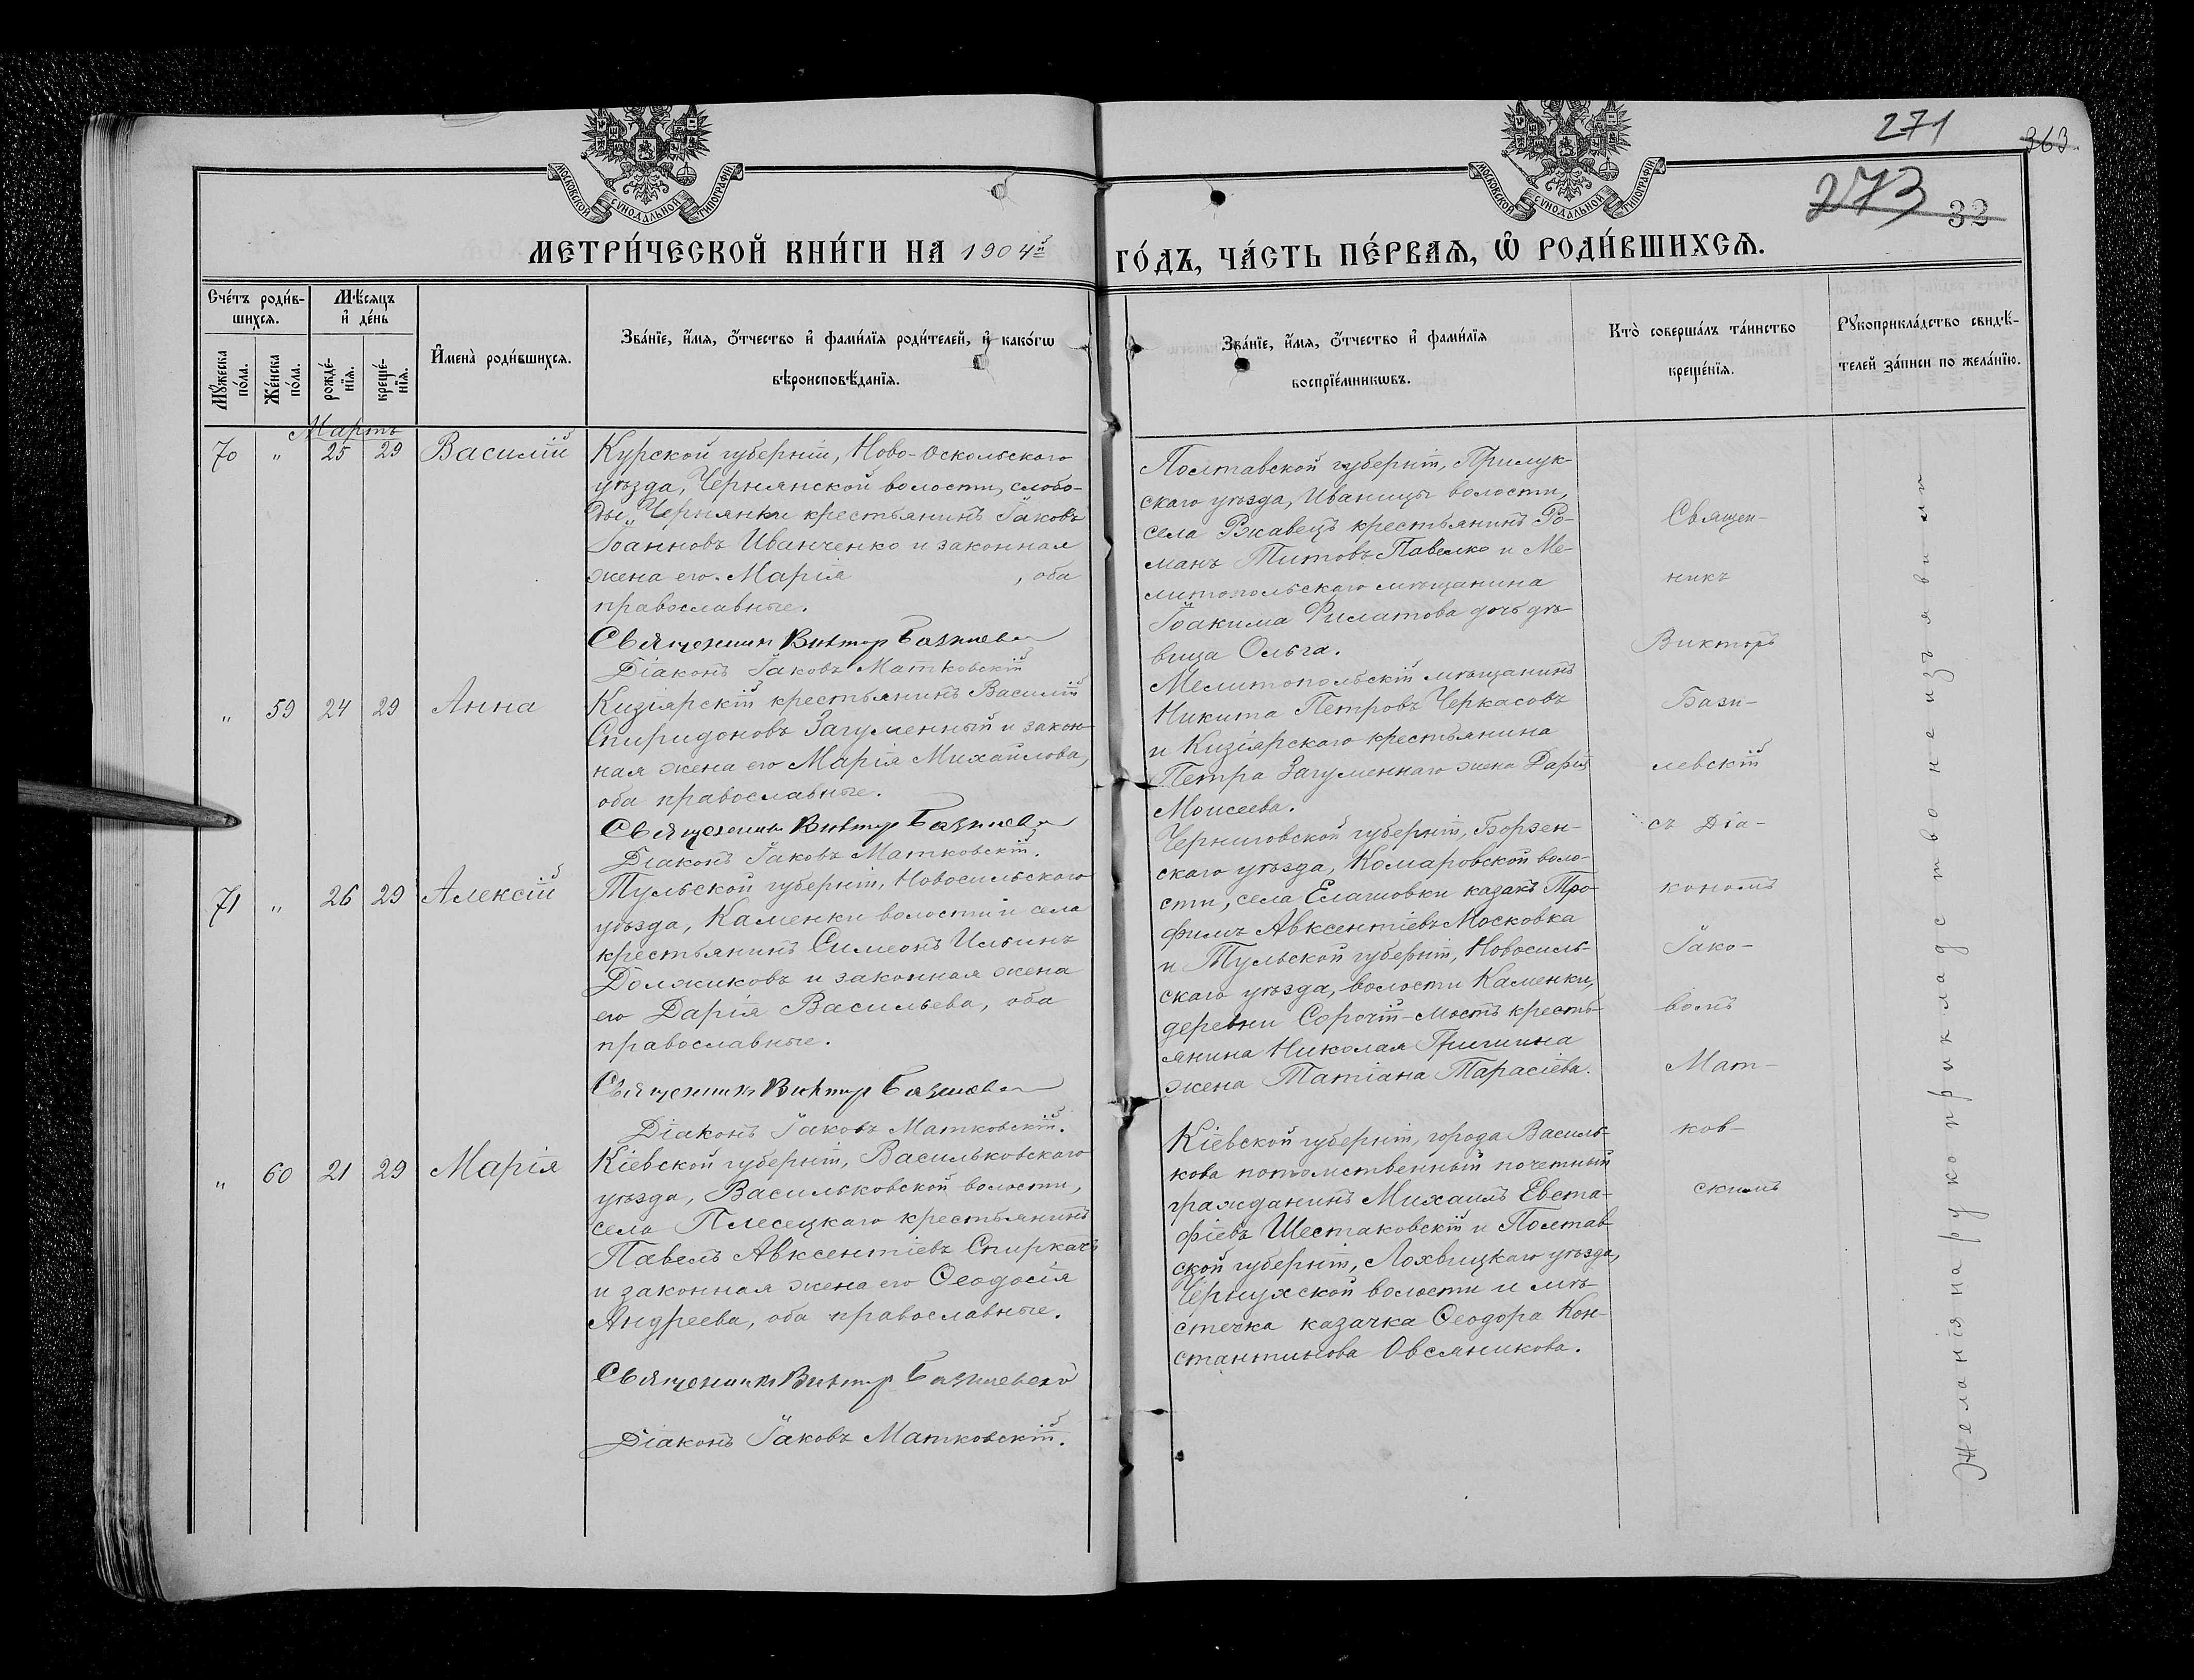 271
363.
273 32
МОСКОВСКОЙ СѴНОДАЛЬНОЙ ТИПОГРАФІИ
МОСКОВСКОЙ СѴНОДАЛЬНОЙ ТИПОГРАФІИ
МЕТРИ́ЧЕСКОЙ КНИ́ГИ НА 1904й
ГО́ДЪ, ЧА́СТЬ ПЕ́РВАѦ, Ѡ҆ РОДИ́ВШИХСѦ.
Сче́тъ роди́в-
шихсѧ.
Мꙋ́жеска по́ла.
Же́нска по́ла.
Мѣ́сѧцъ
и҆ де́нь
рожде́-
нїѧ.
креще́-
нїѧ.
И҆мена̀ роди́вшихсѧ.
Зва́нїе, и҆́мѧ, ѻ҆́тчество и҆ фами́лїѧ роди́телей, и҆ како́гѡ
вѣроисповѣ́данїѧ.
Зва́нїе, и҆́мѧ, ѻ҆́тчество и҆ фами́лїѧ
воспрїе́мникѡвъ.
Кто̀ соверша́лъ та́инство
креще́нїѧ.
Рꙋкоприкла́дство свидѣ́-
телей за́писи по жела́нїю.
Мартъ
70 " 25 29 Василій
Курской губерніи, Ново-Оскольскаго
уѣзда, Чернянской волости, слобо-
ды Чернянки крестьянинъ Іаковъ
Іоанновъ Иванченко и законная
жена его Марія , оба
православные.
Священникъ Викторъ Базилев
Діаконъ Іаковъ Матковскій
Полтавской губерніи, Прилук-
скаго уѣзда, Иваницы волости,
села Ржавецъ крестьянинъ Ро-
манъ Титовъ Павелко и Ме-
литопольскаго мѣщанина
Іоакима Филатова дочь дѣ-
вица Ольга.
" 59 24 29 Анна
Кизіярскій крестьянинъ Василій
Спиридоновъ Загуменный и закон-
ная жена его Марія Михайлова,
оба православные.
Священникъ Викторъ Базилев
Діаконъ Іаковъ Матковскій.
Мелитопольскій мѣщанинъ
Никита Петровъ Черкасовъ
и Кизіярскаго крестьянина
Петра Загуменнаго жена Дарія
Моисеева.
71 " 26 29 Алексій
Тульской губерніи, Новосильскаго
уѣзда, Каменки волости и села
крестьянинъ Симеонъ Ильинъ
Должиковъ и законная жена
его Дарія Васильева, оба
православные.
Священникъ Викторъ Базилев
Діаконъ Іаковъ Матковскій.
Черниговской губерніи, Борзен-
скаго уѣзда, Комаровской воло-
сти, села Евлашовки казакъ Тро-
фимъ Авксентіевъ Московка
и Тульской губерніи, Новосиль-
скаго уѣзда, волости Каменки,
деревни Сорочій-Мостъ кресть-
янина Николая
жена Татіана Тарасіева.
" 60 21 29 Марія
Кіевской губерніи, Васильковскаго
уѣзда, Васильковской волости,
села Плесецкаго крестьянинъ
Павелъ Авксентіевъ Спиркачъ
и законная жена его Ѳеодосія
Андреева, оба православные.
Священникъ Викторъ Базилевскій
Діаконъ Іаковъ Матковскій.
Кіевской губерніи, города Василь-
кова потомственный почетный
гражданинъ Михаилъ Евста-
фіевъ Шестаковскій и Полтав-
ской губерніи, Лохвицкаго уѣзда,
Чернухской волости и мѣ-
стечка казачка Ѳеодора Кон-
стантинова Овсяникова.
Священ-
никъ
Викторъ
Бази-
левскій
съ Діа-
кономъ
Іако-
вомъ
Мат-
ков-
скимъ
Желанія на рукоприкладство не изъявили